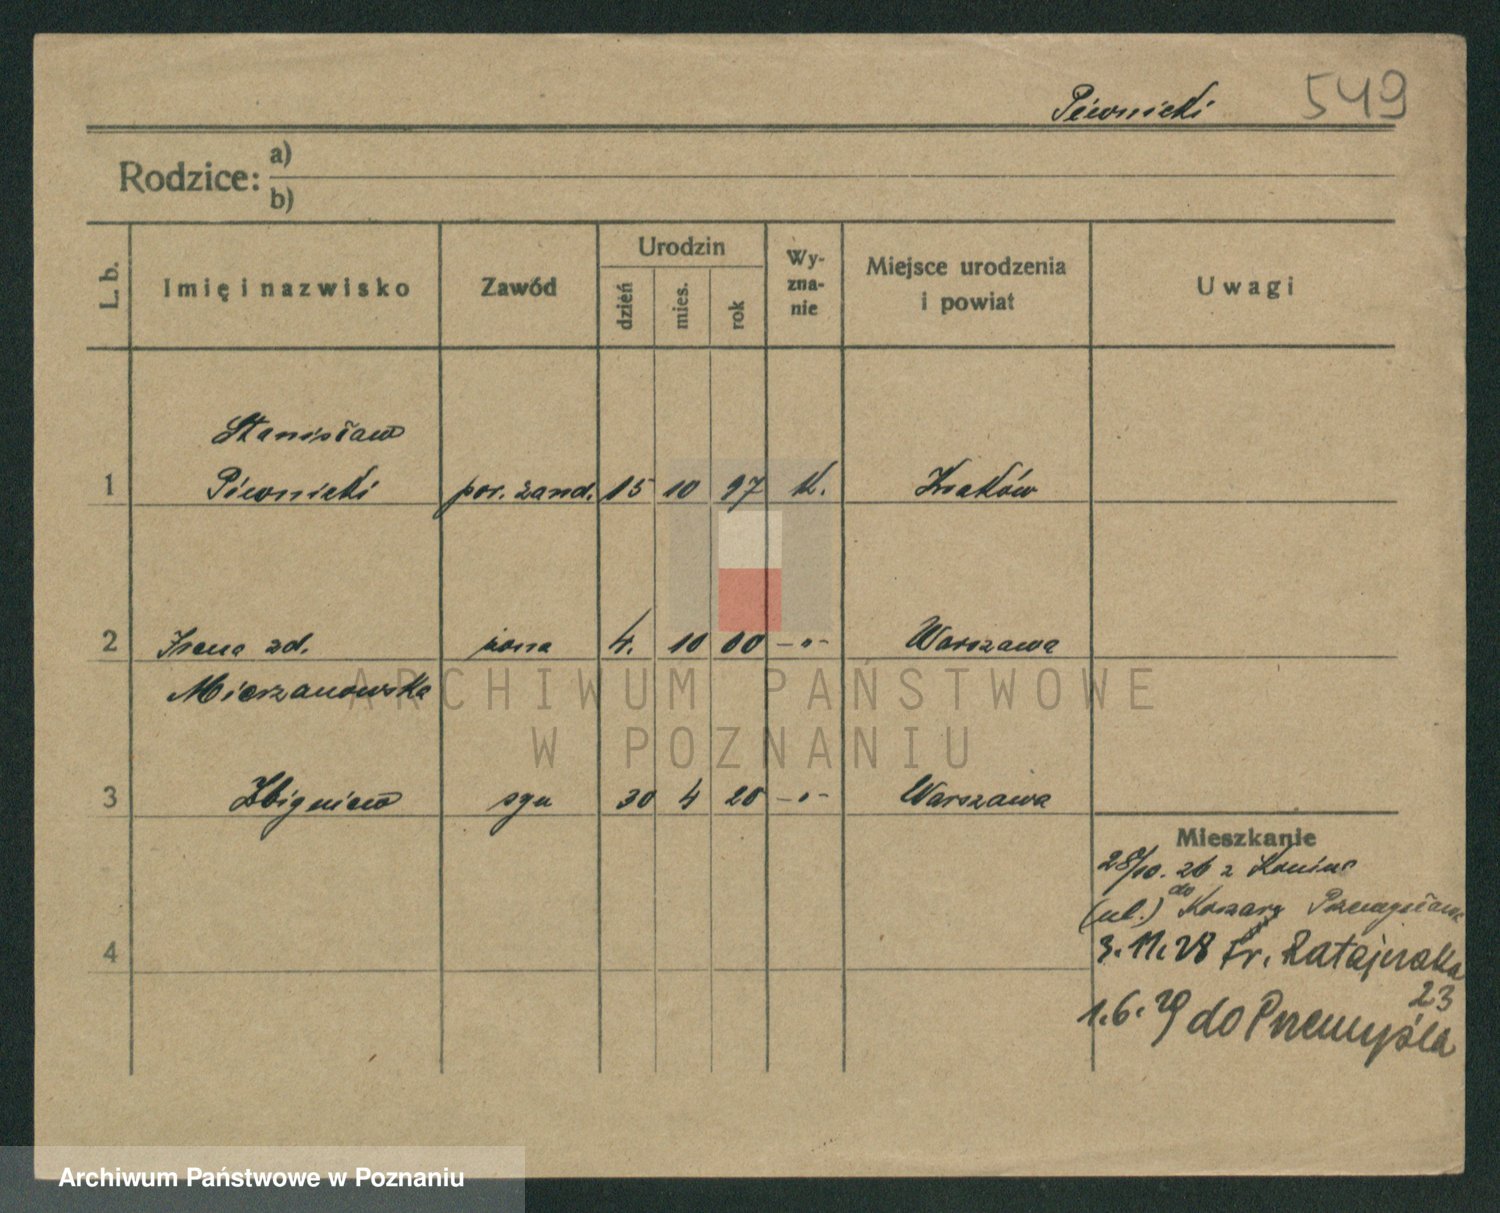 Piwnicki 549
Rodzice:
a)
b)
L. b.
Imię i nazwisko
Zawód
Urodzin
dzień
mies.
rok
Wy-
zna-
nie
Miejsce urodzenia
i powiat
Uwagi
Stanisław
1 Piwnicki por. żand. 15 10 97 K. Kraków
2 Irena zd. żona 4. 10 00 -"- Warszawa
Mierzanowska
3 Zbigniew syn 30 4 20 -"- Warszawa
Mieszkanie
28/10. 26 z Konina
do
(ul.) Koszary
4
3. 11. 28 Fr. Ratajczaka
23
1. 6. 29 do Przemyśla
ARCHIWUM PAŃSTWOWE
W POZNANIU
Archiwum Państwowe w Poznaniu